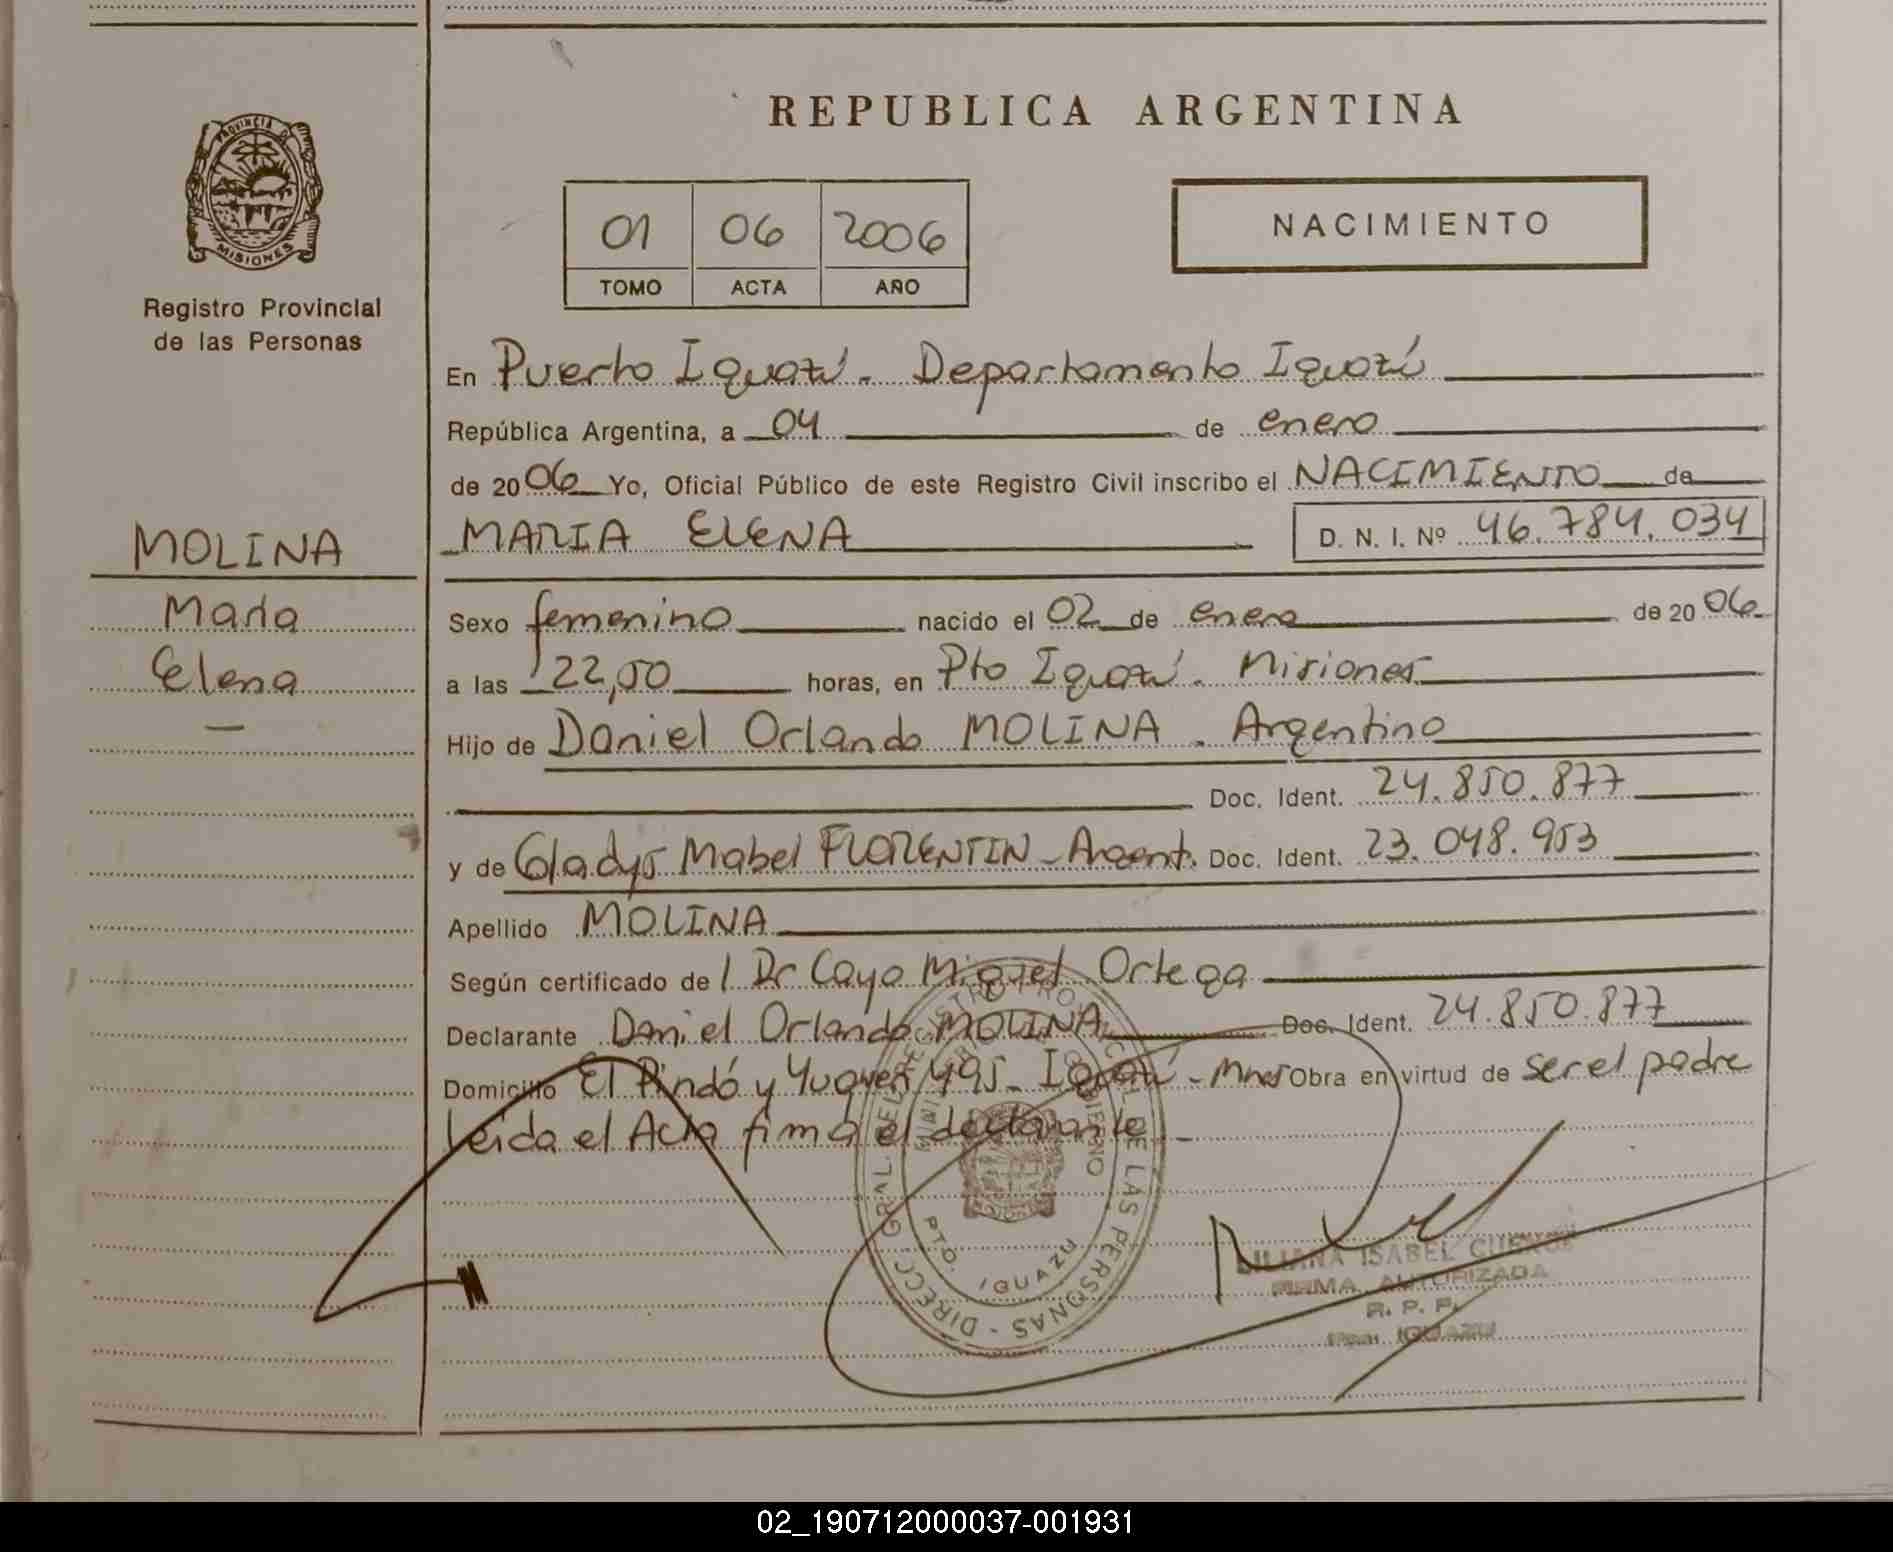 REPUBLICA ARGENTINA
PROVINCIA DE
MISIONES
Registro Provincial
de las Personas
01 06 2006
TOMO ACTA AÑO
NACIMIENTO
En Puerto Iguazú. Departamento Iguazú
República Argentina, a 04 de enero
de 2006 Yo, Oficial Público de este Registro Civil inscribo el NACIMIENTO de
MARIA ELENA D. N. I. Nº 46.784.034
MOLINA
Maria
Elena
—
Sexo femenino nacido el 02 de enero de 2006
a las 22,50 horas, en Pto Iguazú. Misiones
Hijo de Daniel Orlando MOLINA. Argentino
Doc. Ident. 24.850.877
y de Gladys Mabel FLORENTIN - Argent. Doc. Ident. 23.048.953
Apellido MOLINA
Según certificado de l Dr Cayo Miguel Ortega
Declarante Daniel Orlando MOLINA Doc. Ident. 24.850.877
Domicilio El Pindó y 495 - Iguazú - Mnes Obra en virtud de ser el padre
Leida el Acta firma el declarante -
DIRECC. GRAL. DEL REGISTRO PROVINCIAL DE LAS PERSONAS
GOBIERNO
PTO. IGUAZU
LILIANA ISABEL
FIRMA AUTORIZADA
R. P. P.
IGUAZU
02_190712000037-001931